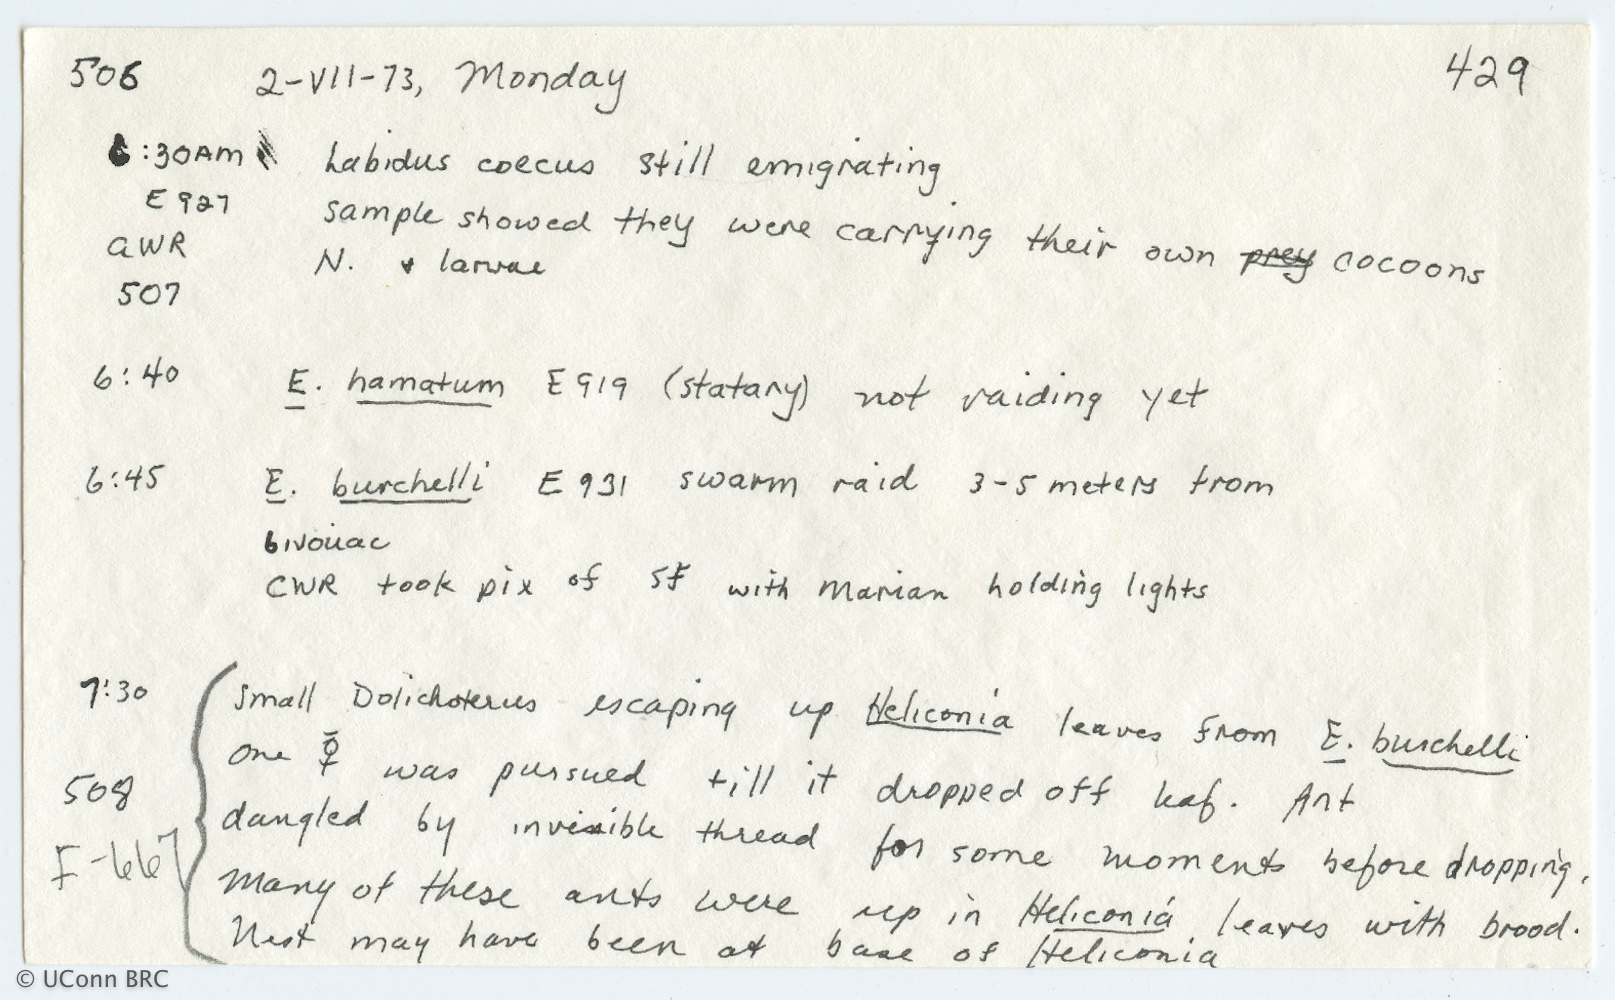 506 2-VII-73, Monday 429
6:30AM Labidus coecus still emigrating
E 927 sample showed they were carrying their own prey cocoons
AWR N. + larvae
507
6:40 E. hamatum E 919 (statary) not raiding yet
6:45 E. burchelli E 931 swarm raid 3-5 meters from
bivouac
CWR took pix of SF with Marian holding lights
7:30 Small Dolichoterus escaping up Heliconia leaves from E. burchelli
one was pursued till it dropped off leaf. Ant
508 dangled by invisible thread for some moments before dropping.
F-667 Many of these ants were up in Heliconia leaves with brood.
Nest may have been at base of Heliconia
© UConn BRC